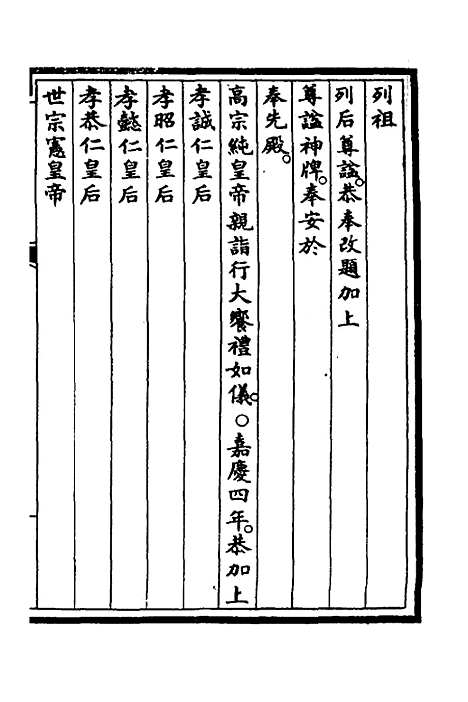 列祖
列后尊諡。恭奉改題加上
尊諡神牌。奉安於
奉先殿。
高宗純皇帝親詣行大饗禮如儀。○嘉慶四年。恭加上
孝誠仁皇后
孝昭仁皇后
孝懿仁皇后
孝恭仁皇后
世宗憲皇帝